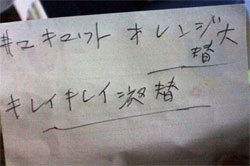 キュキュット オレンジ大
替
キレイキレイ 替